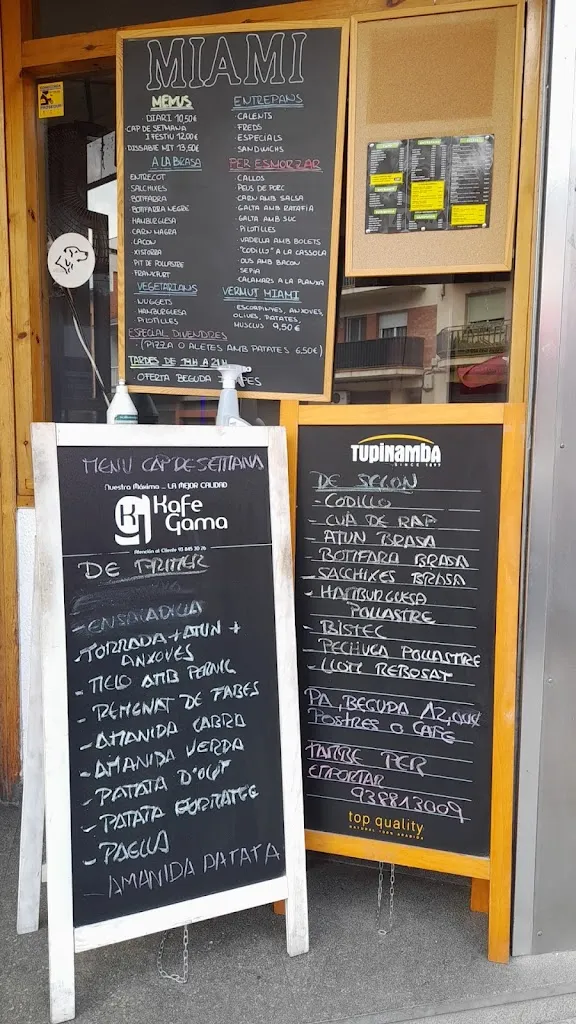 MIAMI
MENUS
· DIARI 10,50€
· CAP DE SETMANA
I FESTIU 12,00€
DISSABTE NIT 13,50€
A LA BRASA
ENTRECOT
SALCHIXES
BOTIFARRA
BOTIFARRA NEGRE
HAMBURGUESA
CARN MAGRA
LACON
XISTORRA
PIT DE POLLASTRE
FRANKFURT
VEGETARIANS
NUGGETS
HAMBURGUESA
PILOTILLES
ENTREPANS
· CALENTS
· FREDS
· ESPECIALS
· SANDWICHS
PER ESMORZAR
· CALLOS
· PEUS DE PORC
· CARN AMB SALSA
· GALTA AMB RATAFIA
· GALTA AMB SUC
· PILOTILLES
· VADELLA AMB BOLETS
· "CODILLO" A LA CASSOLA
· OUS AMB BACON
· SEPIA
· CALAMARS A LA PLANXA
VERMUT MIAMI
· ESCOPINYES, ANXOVES,
OLIVES, PATATES,
MUSCLUS 9,50€
ESPECIAL DIVENDRES
· (PIZZA O ALETES AMB PATATES 6.50€)
TARDES DE 19H A 21H
· OFERTA BEGUDA
MENU CAP DE SETMANA
Nuestra Máxima ... LA MEJOR CALIDAD
Kafe
Gama
Atención al Cliente 93 845 20 26
DE PRIMER
- ENSALADILLA
- TORRADA + ATUN +
ANXOVES
- MELO AMB PERNIL
- REMENAT DE FABES
- AMANIDA CABRA
- AMANIDA VERDA
- PATATA D'OLOT
- PATATA FORMATGE
- PAELLA
- AMANIDA PATATA
TUPINAMBA
SINCE 1897
DE SEGON
- CODILLO
- CUA DE RAP
- ATUN BRASA
- BOTIFARA BRASA
- SALCHIXES BRASA
- HAMBURGUESA
POLLASTRE
- BISTEC
- PECHUGA POLLASTRE
- LLOM REBOSAT
PA, BEGUDA 12,00€
POSTRES O CAFE
TAMBE PER
EMPORTAR
938813009
top quality